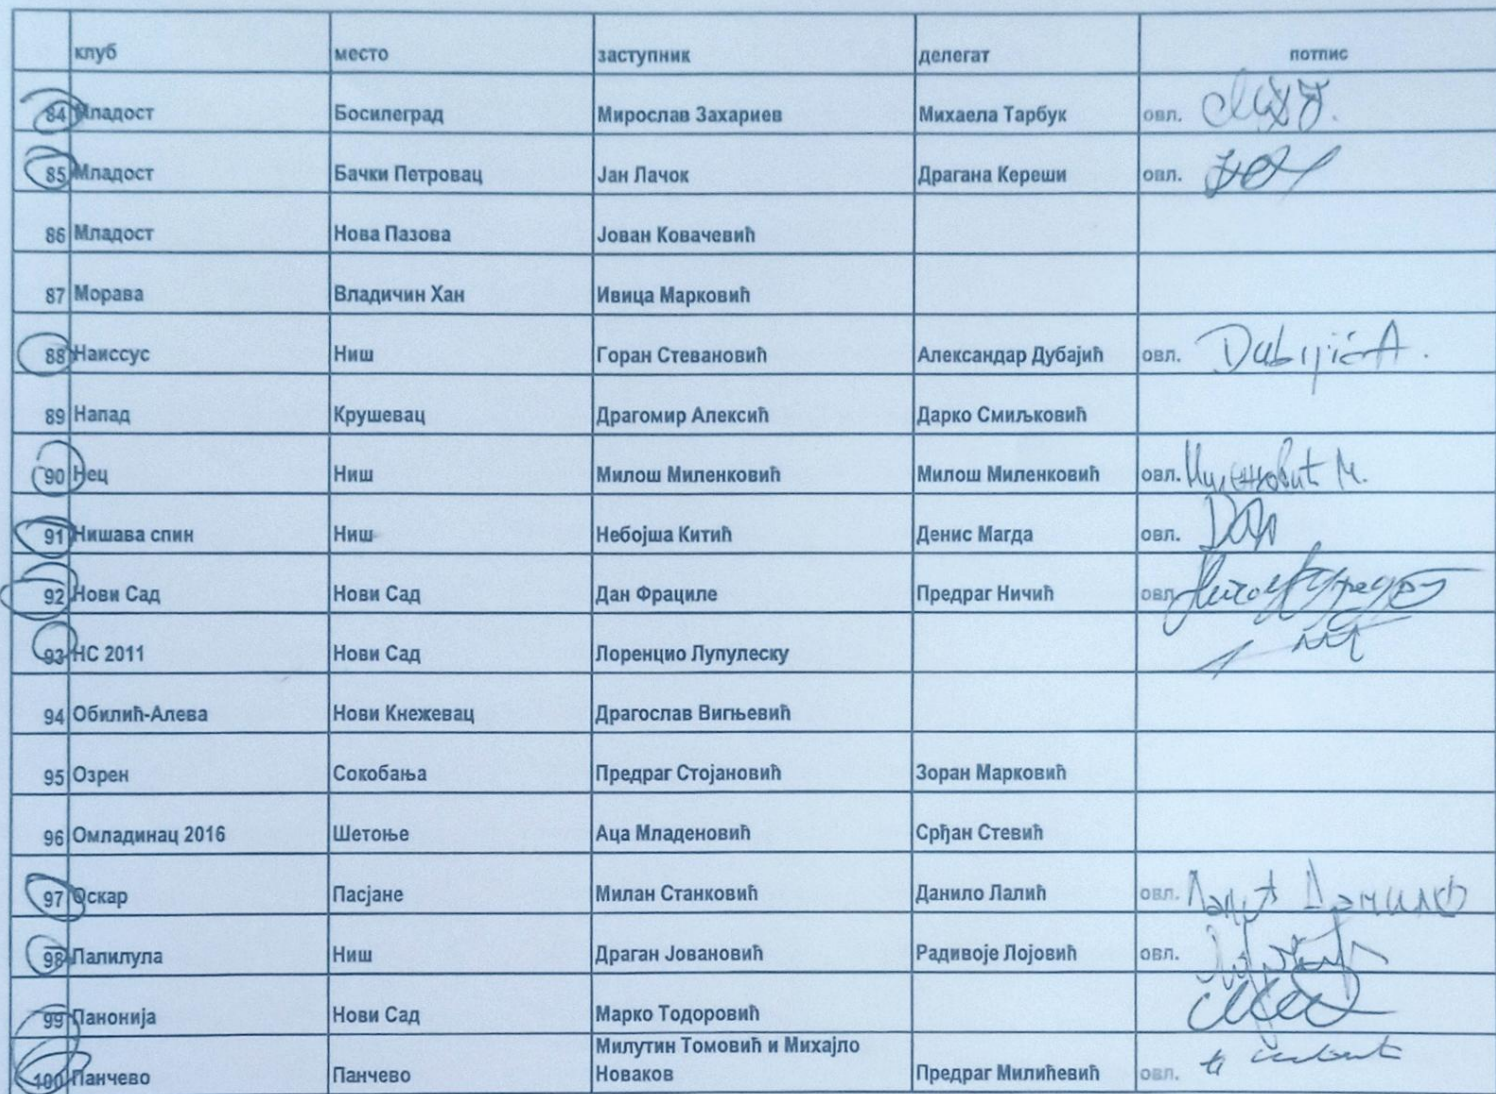 клуб место заступник делегат потпис
84 Младост Босилеград Мирослав Захариев Михаела Тарбук овл.
85 Младост Бачки Петровац Јан Лачок Драгана Кереши овл.
86 Младост Нова Пазова Јован Ковачевић
87 Морава Владичин Хан Ивица Марковић
88 Наиссус Ниш Горан Стевановић Александар Дубајић овл.
89 Напад Крушевац Драгомир Алексић Дарко Смиљковић
90 Нец Ниш Милош Миленковић Милош Миленковић овл.
91 Нишава спин Ниш Небојша Китић Денис Магда овл.
92 Нови Сад Нови Сад Дан Фрациле Предраг Ничић овл.
93 НС 2011 Нови Сад Лоренцио Лупулеску
94 Обилић-Алева Нови Кнежевац Драгослав Вигњевић
95 Озрен Сокобања Предраг Стојановић Зоран Марковић
96 Омладинац 2016 Шетоње Аца Младеновић Срђан Стевић
97 Оскар Пасјане Милан Станковић Данило Лалић овл.
98 Палилула Ниш Драган Јовановић Радивоје Лојовић овл.
99 Панонија Нови Сад Марко Тодоровић
Милутин Томовић и Михајло
100 Панчево Панчево Новаков Предраг Милићевић овл.